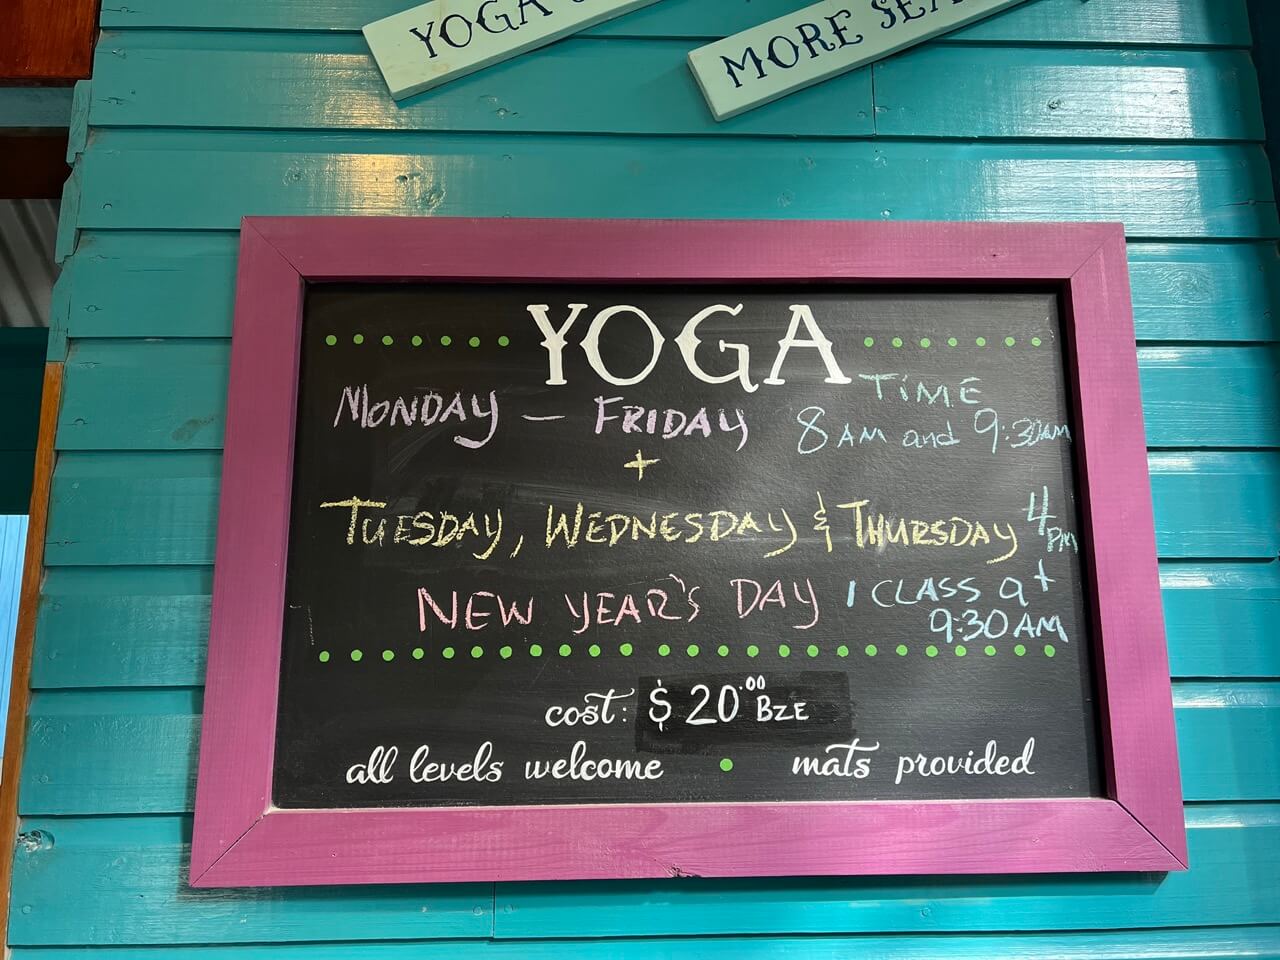 YOGA
MORE SEA
YOGA
TiME
MONDAY – FRIDAY 8 AM and 9:30AM
+
TUESDAY, WEDNESDAY & THURSDAY 4 PM
NEW YEAR'S DAY 1 CLASS at
9:30 AM
cost: $20.00 BZE
all levels welcome • mats provided